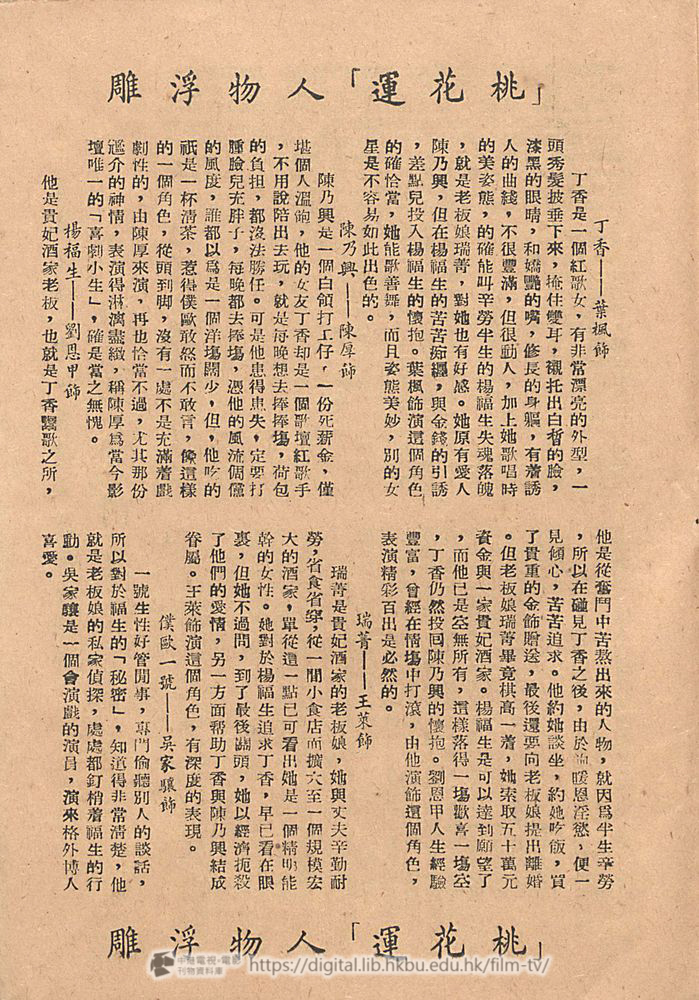 「桃花運」人物浮雕
丁香——葉楓飾
丁香是一個紅歌女，有非常漂亮的外型，一
頭秀髮披垂下來，掩住雙耳，襯托出白皙的臉，
漆黑的眼睛，和嬌艷的嘴，修長的身軀，有着誘
人的曲綫，不很豐滿，但很動人，加上她歌唱時
的美姿態，的確能叫辛勞半生的楊福生失魂落魄
，就是老板娘瑞菁，對她也有好感。她原有愛人
陳乃興，但在楊福生的苦苦痴纏，與金錢的引誘
，差點兒投入楊福生的懷抱。葉楓飾演這個角色
的確恰當，她能歌善舞，而且姿態美妙，別的女
星是不容易如此出色的。
陳乃興——陳厚飾
陳乃興是一個白領打工仔，一份死薪金，僅
堪個人溫飽，他的女友丁香却是一個歌壇紅歌手
，不用說陪出去玩，就是每晚想去捧捧塲，荷包
的負担，都沒法勝任。可是他患得患失，定要打
腫臉兒充胖子，每晚都去捧塲，憑他的風流倜儻
的風度，誰都以爲是一個洋塲闊少，但，他吃的
祇是一杯清茶，惹得僕歐敢怒而不敢言，像這樣
的一個角色，從頭到脚，沒有一處不是充滿着戲
劇性的，由陳厚來演，再也恰當不過，尤其那份
尷介的神情，表演得淋漓盡緻，稱陳厚爲當今影
壇唯一的「喜劇小生」，確是當之無愧。
楊福生——劉恩甲飾
他是貴妃酒家老板，也就是丁香鬻歌之所，
他是從奮鬥中苦熬出來的人物，就因爲半生辛勞
，所以在碰見丁香之後，由於飽暖思淫慾，便一
見傾心，苦苦追求。他約她談坐，約她吃飯，買
了貴重的金飾贈送，最後還要向老板娘提出離婚
。但老板娘瑞菁畢竟棋高一着，她索取五十萬元
資金與一家貴妃酒家。楊福生是可以達到願望了
，而他已是空無所有，這樣落得一塲歡喜一塲空
，丁香仍然投囘陳乃興的懷抱。劉恩甲人生經驗
豐富，曾經在情塲中打滾，由他演飾這個角色，
表演精彩百出是必然的。
瑞菁——王萊飾
瑞菁是貴妃酒家的老板娘，她與丈夫辛勤耐
勞，省食省穿，從一間小食店而擴大至一個規模宏
大的酒家，單從這一點已可看出她是一個精明能
幹的女性。她對於楊福生追求丁香，早已看在眼
裏，但她不過問，到了最後關頭，她以經濟扼殺
了他們的愛情，另一方面帮助丁香與陳乃興結成
眷屬。王萊飾演這個角色，有深度的表現。
僕歐一號——吳家驤飾
一號生性好管閒事，專門偷聽別人的談話，
所以對於福生的「秘密」，知道得非常清楚，他
就是老板娘的私家偵探，處處都釘梢着福生的行
動。吳家驤是一個會演戲的演員，演來格外博人
喜愛。
「桃花運」人物浮雕
中國電視·電影
刊物資料庫
https://digital.lib.hkbu.edu.hk/film-tv/